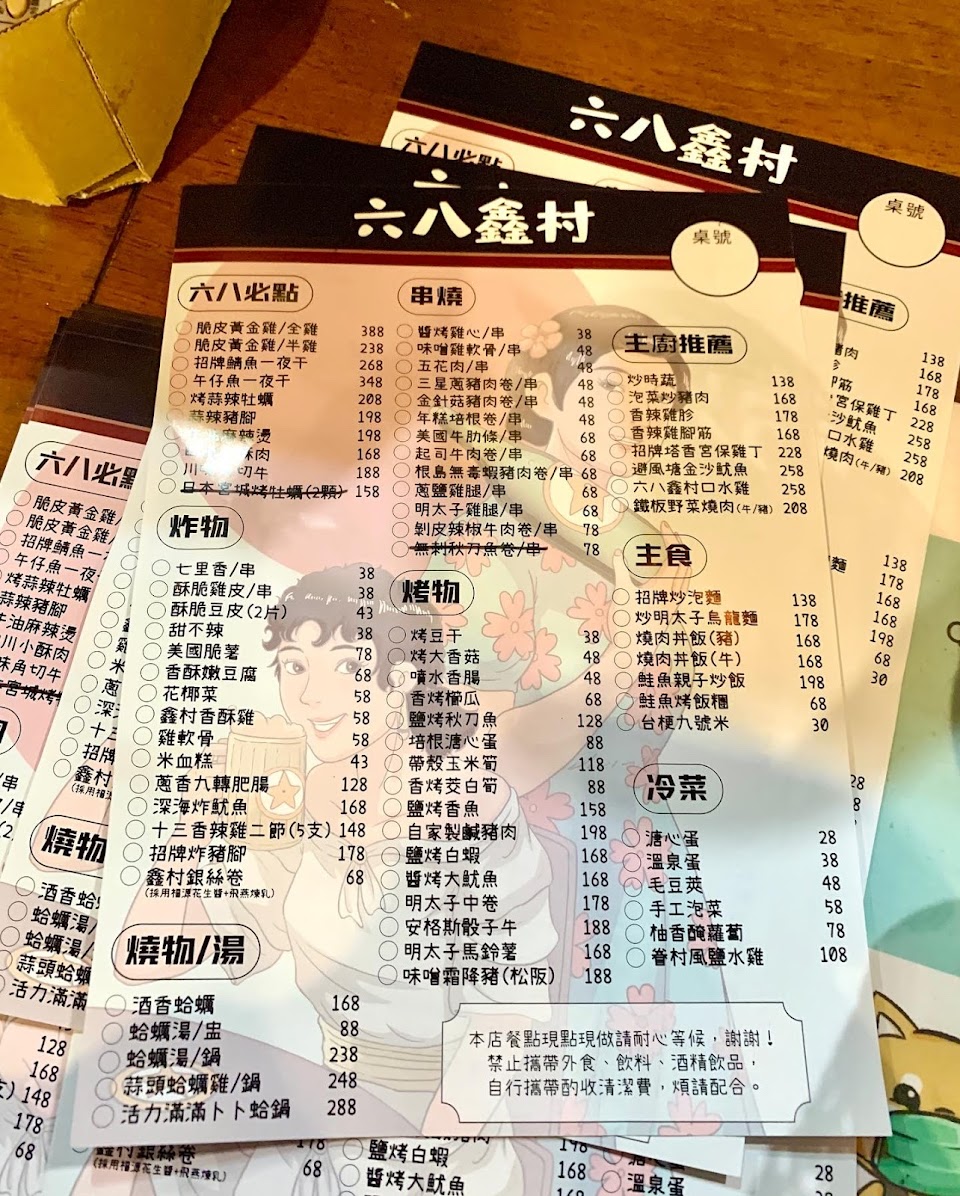 六八鑫村
六八必點
六八鑫村
桌號
桌號
六八必點
脆皮黃金雞/全雞 388
脆皮黃金雞/半雞 238
招牌鯖魚一夜干 268
午仔魚一夜干 348
烤蒜辣牡蠣 208
蒜辣豬腳 198
麻辣燙 198
酥肉 168
切牛 188
日本宮城烤牡蠣(2顆) 158
炸物
七里香/串 38
酥脆雞皮/串 38
酥脆豆皮(2片) 43
甜不辣 38
美國脆薯 78
香酥嫩豆腐 68
花椰菜 58
鑫村香酥雞 58
雞軟骨 58
米血糕 43
蔥香九轉肥腸 128
深海炸魷魚 168
十三香辣雞二節(5支) 148
招牌炸豬腳 178
鑫村銀絲卷 68
(採用福源花生醬+飛燕煉乳)
燒物/湯
酒香蛤蠣 168
蛤蠣湯/盅 88
蛤蠣湯/鍋 238
蒜頭蛤蠣雞/鍋 248
活力滿滿卜卜蛤鍋 288
串燒
醬烤雞心/串 38
味噌雞軟骨/串 48
五花肉/串 48
三星蔥豬肉卷/串 48
金針菇豬肉卷/串 48
年糕培根卷/串 48
美國牛肋條/串 68
起司牛肉卷/串 68
根島無毒蝦豬肉卷/串 68
蔥鹽雞腿/串 68
明太子雞腿/串 68
剝皮辣椒牛肉卷/串 78
無刺秋刀魚卷/串 78
烤物
烤豆干 38
烤大香菇 48
噴水香腸 48
香烤櫛瓜 68
鹽烤秋刀魚 128
培根溏心蛋 88
帶殼玉米筍 118
香烤茭白筍 88
鹽烤香魚 158
自家製鹹豬肉 198
鹽烤白蝦 168
醬烤大魷魚 168
明太子中卷 178
安格斯骰子牛 188
明太子馬鈴薯 168
味噌霜降豬(松阪) 188
主廚推薦
炒時蔬 138
泡菜炒豬肉 168
香辣雞胗 178
香辣雞腳筋 168
招牌塔香宮保雞丁 228
避風塘金沙魷魚 258
六八鑫村口水雞 258
鐵板野菜燒肉(牛/豬) 208
主食
招牌炒泡麵 138
炒明太子烏龍麵 178
燒肉丼飯(豬) 168
燒肉丼飯(牛) 168
鮭魚親子炒飯 198
鮭魚烤飯糰 68
台梗九號米 30
冷菜
溏心蛋 28
溫泉蛋 38
毛豆莢 48
手工泡菜 58
柚香醃蘿蔔 78
眷村風鹽水雞 108
本店餐點現點現做請耐心等候，謝謝！
禁止攜帶外食、飲料、酒精飲品，
自行攜帶酌收清潔費，煩請配合。
推薦
豬肉 138
168
178
宮保雞丁 168
沙魷魚 228
口水雞 258
258
燒肉(牛/豬) 208
麵 138
178
168
168
198
68
30
六八必點
脆皮黃金雞/
脆皮黃金雞/
招牌鯖魚一
午仔魚一夜
烤蒜辣牡蠣
蒜辣豬腳
牛油麻辣燙
川小酥肉
角切牛
燒物
酒香
蛤蠣湯/
蛤蠣湯/
蒜頭蛤蠣
活力滿滿
128
168
148
178
68
鑫村銀絲卷 68
(採用福源花生醬+飛燕煉乳)
鹽烤白蝦 168
醬烤大魷魚 168
溫泉蛋
28